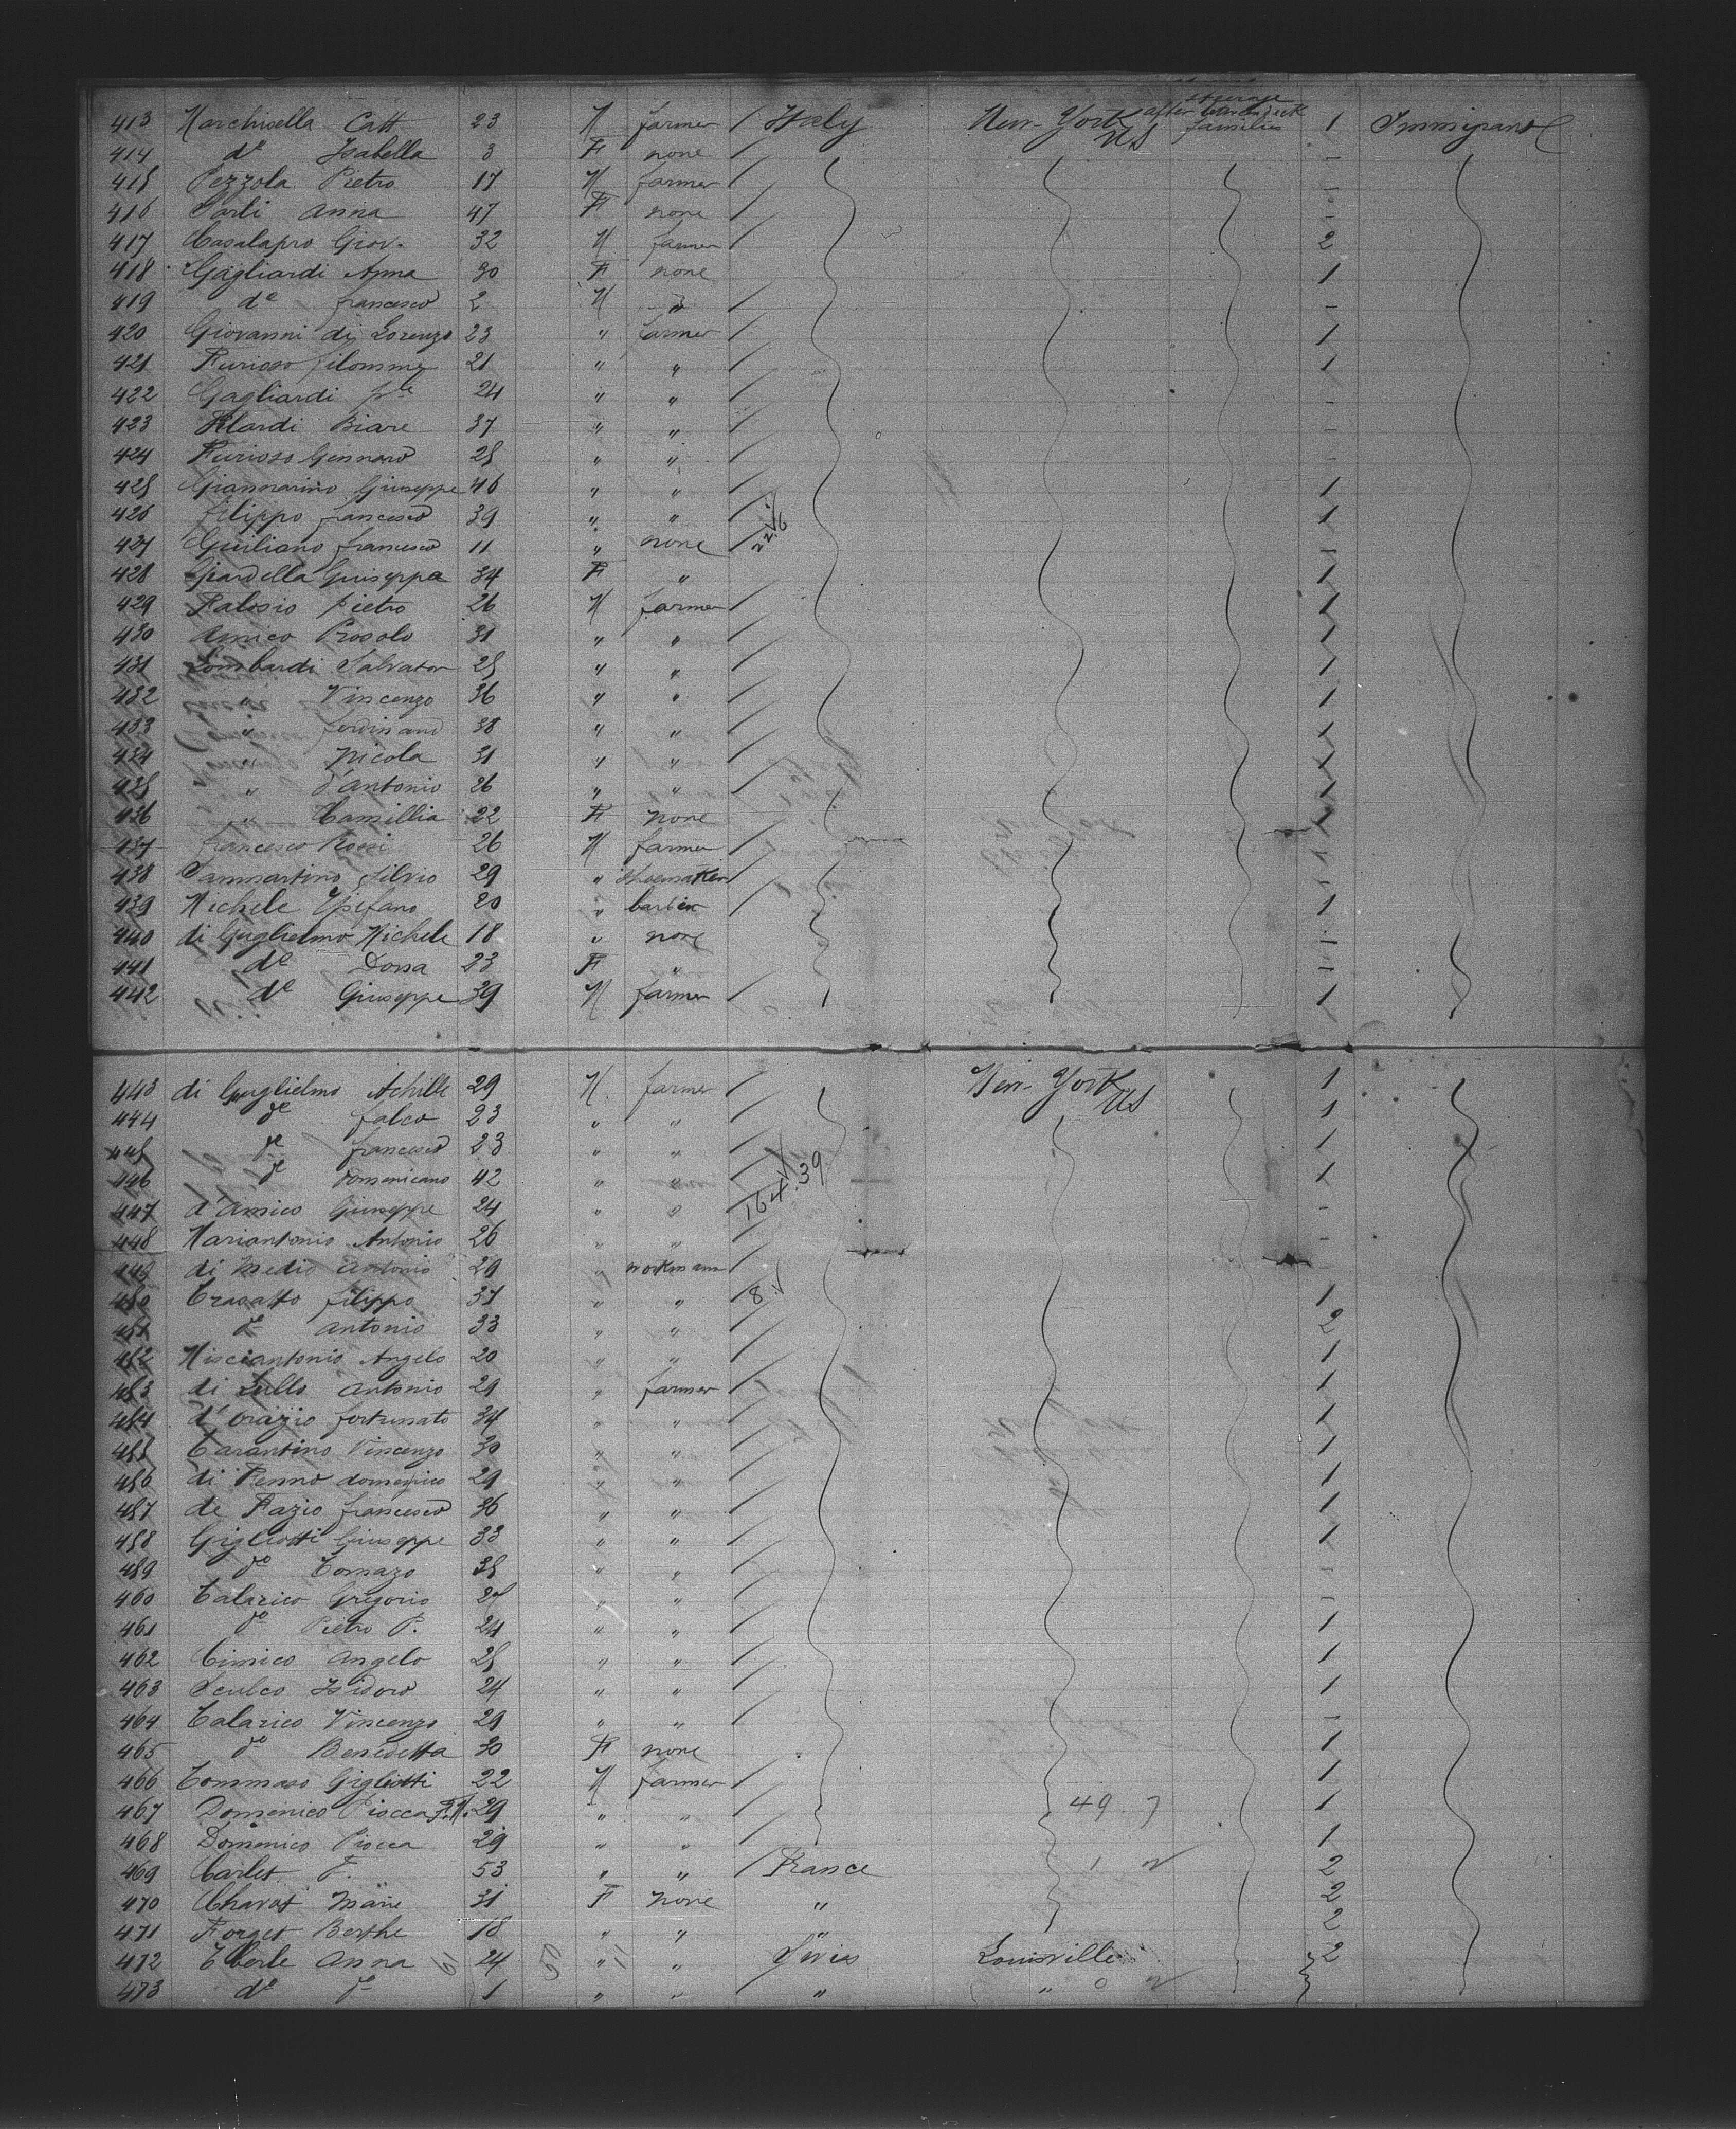 413 Marchisella Catt 23 M farmer / Italy New-York US steerage after between deck families 1 Immigrant
414 do Isabella 3 F none / -
415 Pezzola Pietro 17 M farmer / -
416 Sarli Anna 47 F none / -
417 Casalapro Giov. 32 M farmer / 2
418 Gagliardi Anna 30 F none 1
419 do francesco 2 M " / -
420 Giovanni di Lorenzo 23 " farmer / 1
421 Furioso filomme 21 " " / 1
422 Gagliardi 24 " " / -
423 Biare 37 " " / -
424 Furioso Gennaro 25 " " / -
425 Giannarino Giuseppe 46 " " / 1
426 filippo francesco 39 " " / 1
427 Guiliano francesco 11 " none / -
428 Giardella Guiseppa 34 F " 1
429 Falosio pietro 26 M farmer / 1
430 Amico Prosolo 31 " " / 1
431 Lombardi Salvator 25 " " / 1
432 " Vincenzo 36 " " / 1
433 " ferdinand 38 " " / 1
434 " Nicola 31 " " / 1
435 " d'antonio 26 " " / 1
436 " Camillia 22 F none 1
437 francesco Rossi 26 M farmer / 1
438 Sammartino Silvio 29 " shoemaker / -
439 Michele Epifano 20 " barbier / 1
440 di Guglielmo Michele 18 " none -
441 do Dora 23 F " -
442 do Giuseppe 39 M farmer / 1
443 di Guglielmo Achille 29 M farmer / New-York US 1
444 do falco 23 " " / 1
445 do francesco 23 " " / 1
446 do Domenicano 42 " " / 1
447 d'Amico Giuseppe 24 " " / -
448 Mariantonio Antonio 26 " " / -
449 di Medio antonio 29 " workmann /
450 filippo 37 " " / 1
451 do antonio 33 " " / 2
452 Misciantonio Angelo 20 " " / 1
453 di Lullo antonio 29 " farmer / 1
454 d'orazio fortunato 34 " " / 1
455 Tarantino Vincenzo 30 " " / 1
456 di Fenno domenico 29 " " / 1
457 de Fazio francesco 36 " " / 1
458 Gigliotti Giuseppe 33 " " / 1
459 do Tomazo 35 " " / -
460 Talarico Gregorio 25 " " / -
461 do Pietro P. 24 " " / 1
462 Cimico Angelo 25 " " / 1
463 Sculco Isidoro 24 " " / 1
464 Talarico Vincenzo 29 " " / -
465 do Benedetta 30 F none 1
466 Tommaso Gigliotti 22 M farmer / 1
467 Domenico Piocca 29 " " / 49 7 1
468 Domenico Piocca 29 " " / 1
469 Carlet F. 53 " " / France 1 2
470 Chavat Marie 31 F none " 2
471 Forget Berthe 18 " " " 2
472 Eberle Anna 24 " " Swiss Louisville 2
473 do do 1 " " " " 0